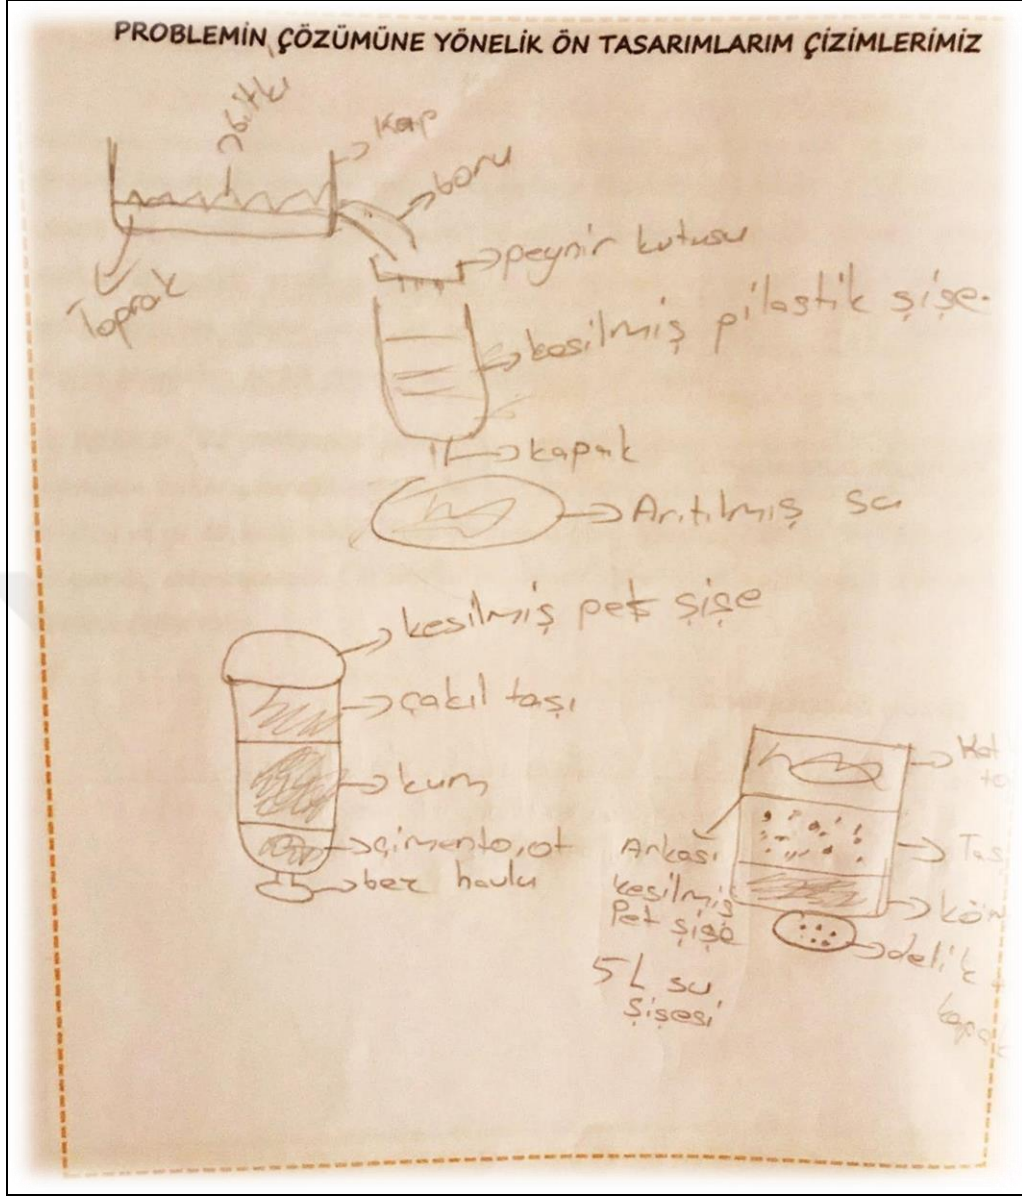 PROBLEMİN ÇÖZÜMÜNE YÖNELİK ÖN TASARIMLARIM ÇİZİMLERİMİZ
Bitki
Kap
boru
Toprak
peynir kutusu
kesilmiş pilastik şişe.
kapak
Arıtılmış su
kesilmiş pet şişe
çakıl taşı
kum
çimento, ot
bez havlu
Arkası
kesilmiş
Pet şişe
5 L su
şişesi
Taş
köm
delik
kapak